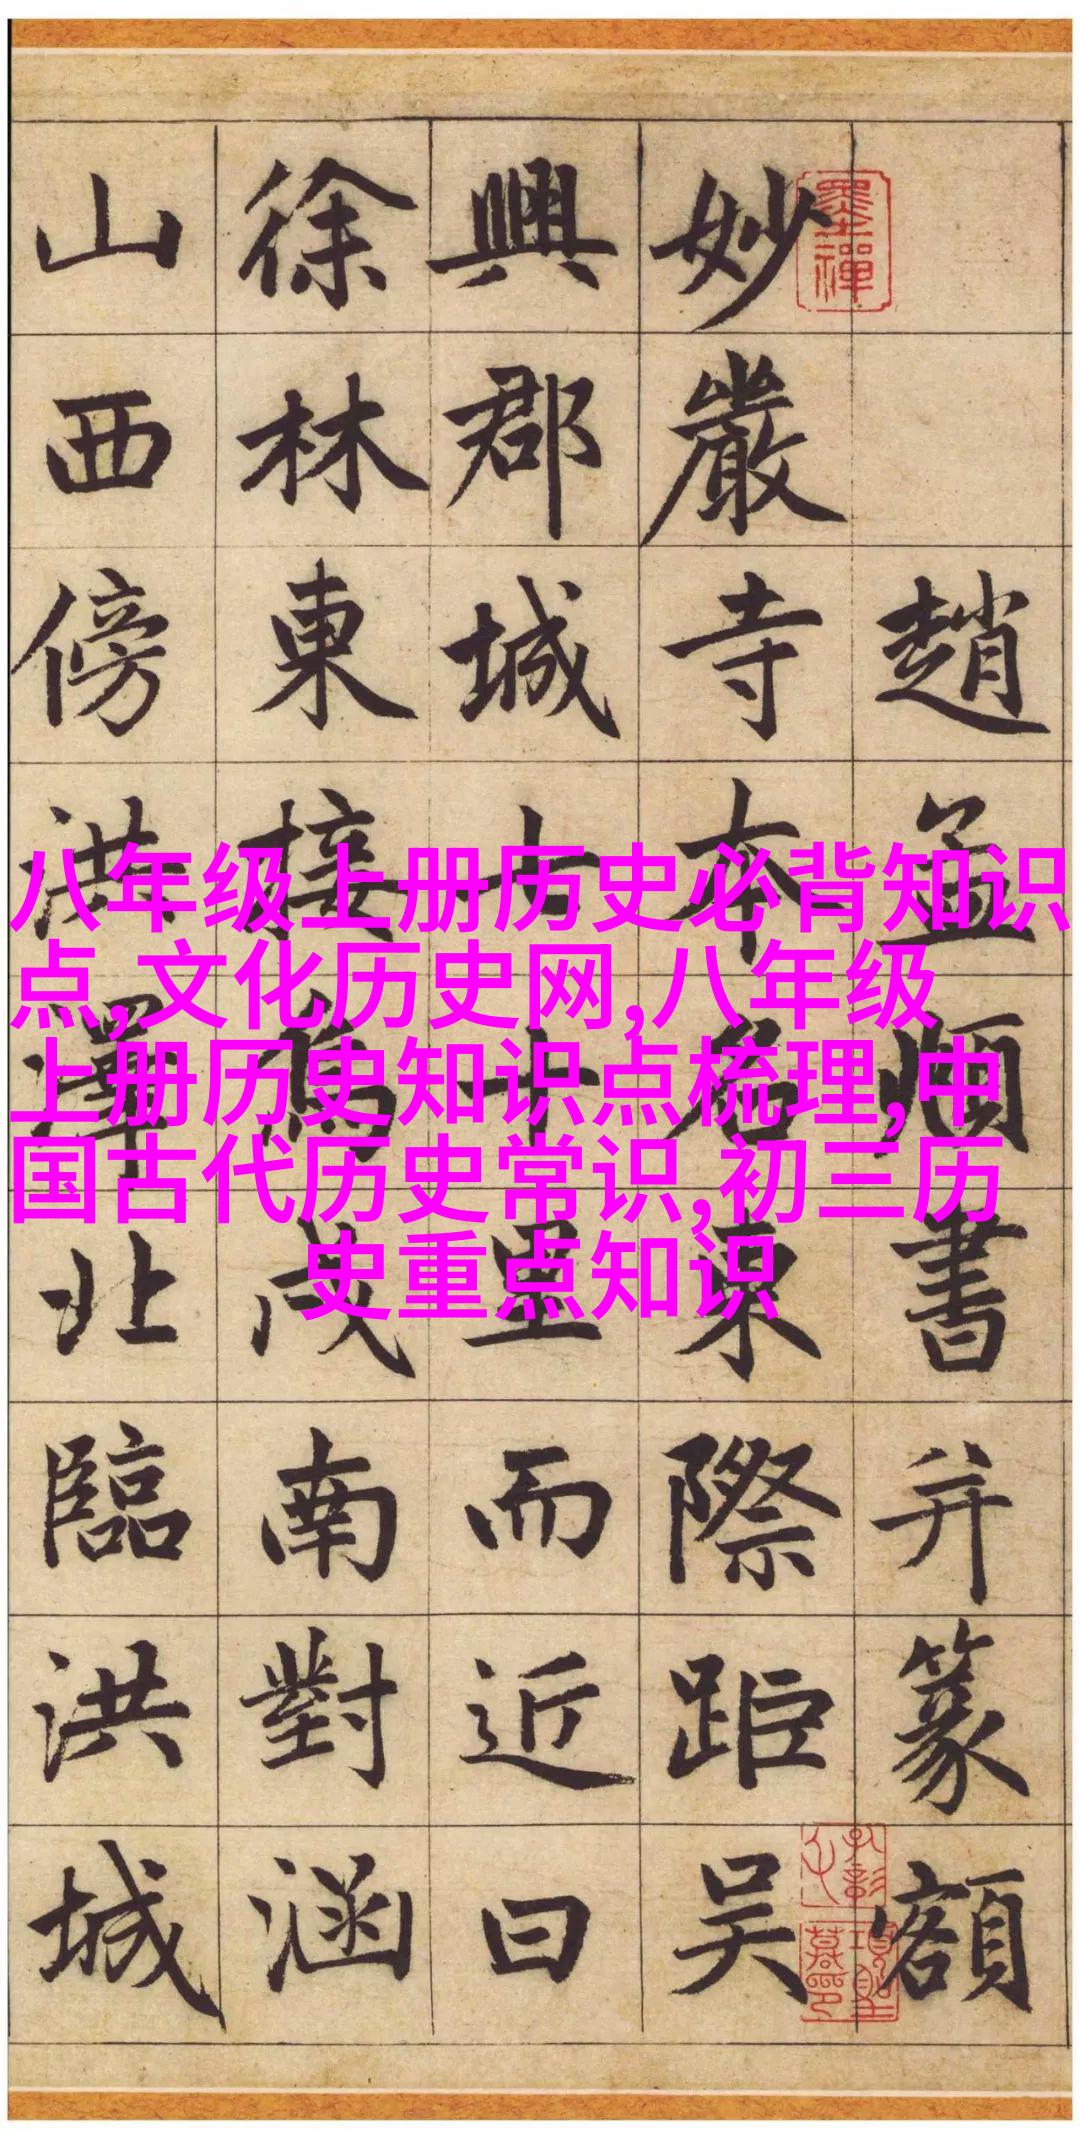 趙孟頫書并篆額
妙嚴寺本名東際距吳
興郡城七十里而近曰
徐林東接烏戍南對涵
山西傍洪澤北臨洪城
墨禪
八年级上册历史必背知识
点,文化历史网,八年级
上册历史知识点梳理,中
国古代历史常识,初三历
史重点知识